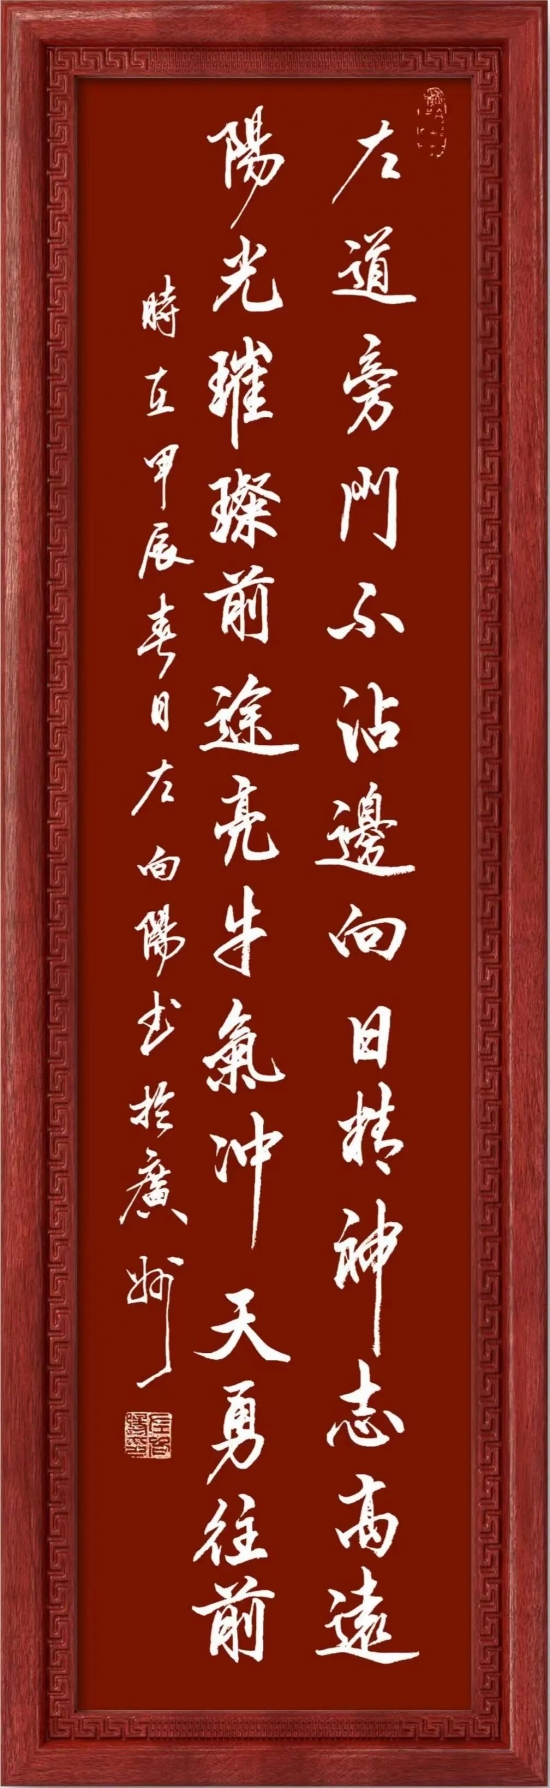 左道旁門不沾邊向日精神志高遠
陽光璀璨前途亮牛氣冲天勇往前
時在甲辰春日左向陽书於廣州